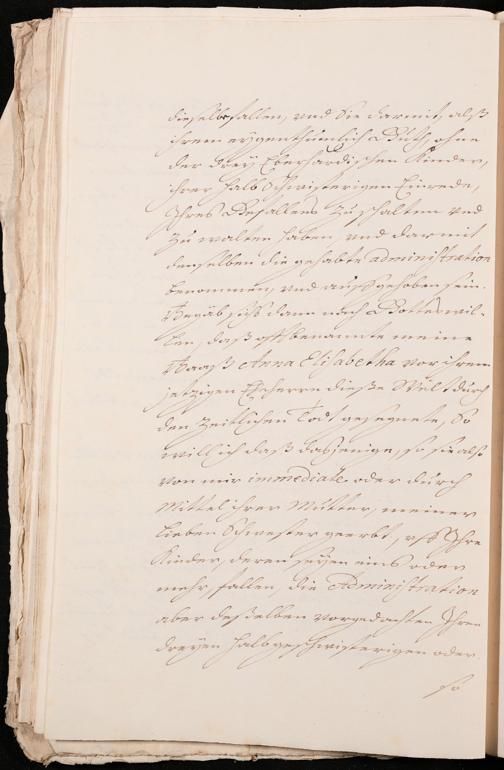 dieselbe fallen, vnd Sie darmit, alß
ihrem eygenthümlich Gueth, ohne
der drey Eberhardischen Kinder,
ihrer halb Schwisterigen Einrede,
Ihres Gefallens zu schalten vnd
zu walten haben, vnd darmit
denselben die gehabte administration
benommen, vnd auffgehoben sein.
Begäb sichs dann nach Gottes wil-
len, daß offtbenannte meine
Baaß Anna Elisabetha vor ihrem
jetzigen Eheherrn dieße Welt durch
den Zeitlichen Todt gesegnete, So
will ich daß dasjenige, so sie also
von mir immediatè oder durch
Mittel ihrer Mutter, meiner
lieben Schwester geerbt, vff Ihre
Kinder, deren seyen eins oder
mehr, fallen, die Administration
aber desselben vorgedachten Ihren
dreyen halbgeschwisterigen oder
so